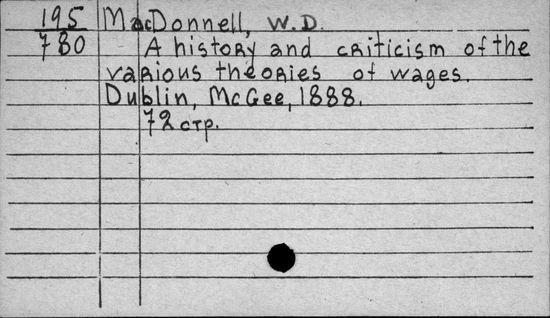 195 MacDonnell, W.D.
780 A history and criticism of the
various theories of wages.
Dublin, McGee, 1888.
72 стр.